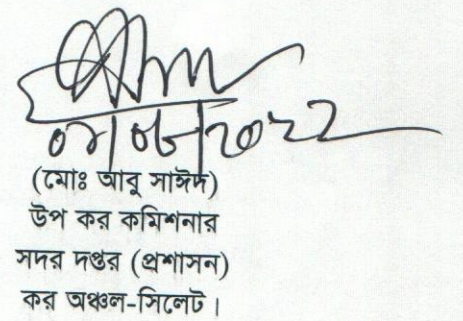 (মোঃ আবু সাঈদ)
উপ কর কমিশনার
সদর দপ্তর (প্রশাসন)
কর অঞ্চল-সিলেট।